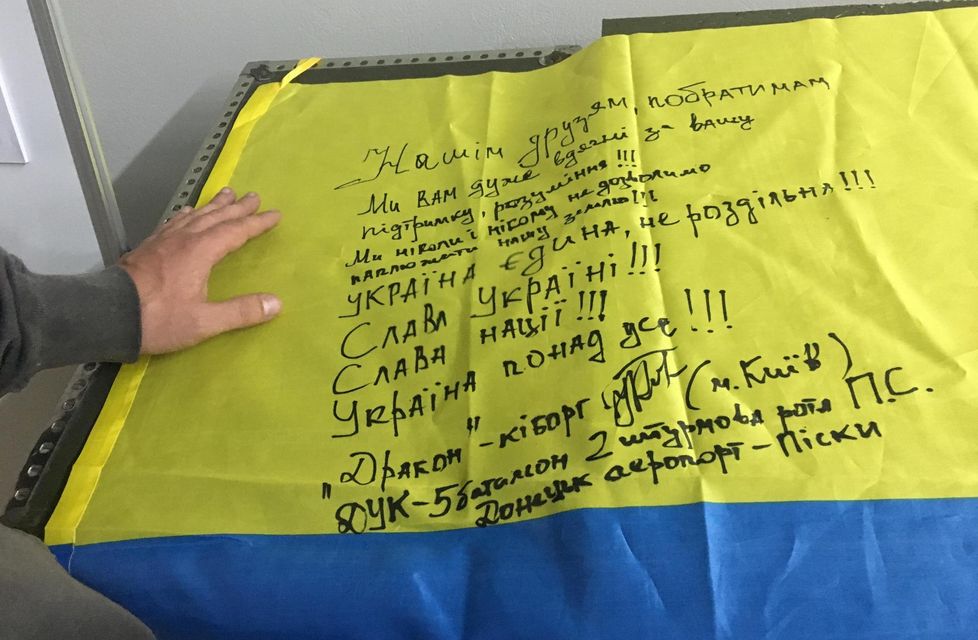 Нашим друзям, побратимам
Ми вам дуже вдячні за вашу
підтримку, розуміння!!!
Ми ніколи і нікому не дозволимо
паплюжити нашу землю!!!
УКРАЇНА ЄДИНА, не роздільна!!!
Слава Україні!!!
Слава нації!!!
Україна понад усе!!!
"Дракон" - кіборг (м. Київ)
ДУК-5 батальон 2 штурмова рота П.С.
Донецьк аеропорт - Піски